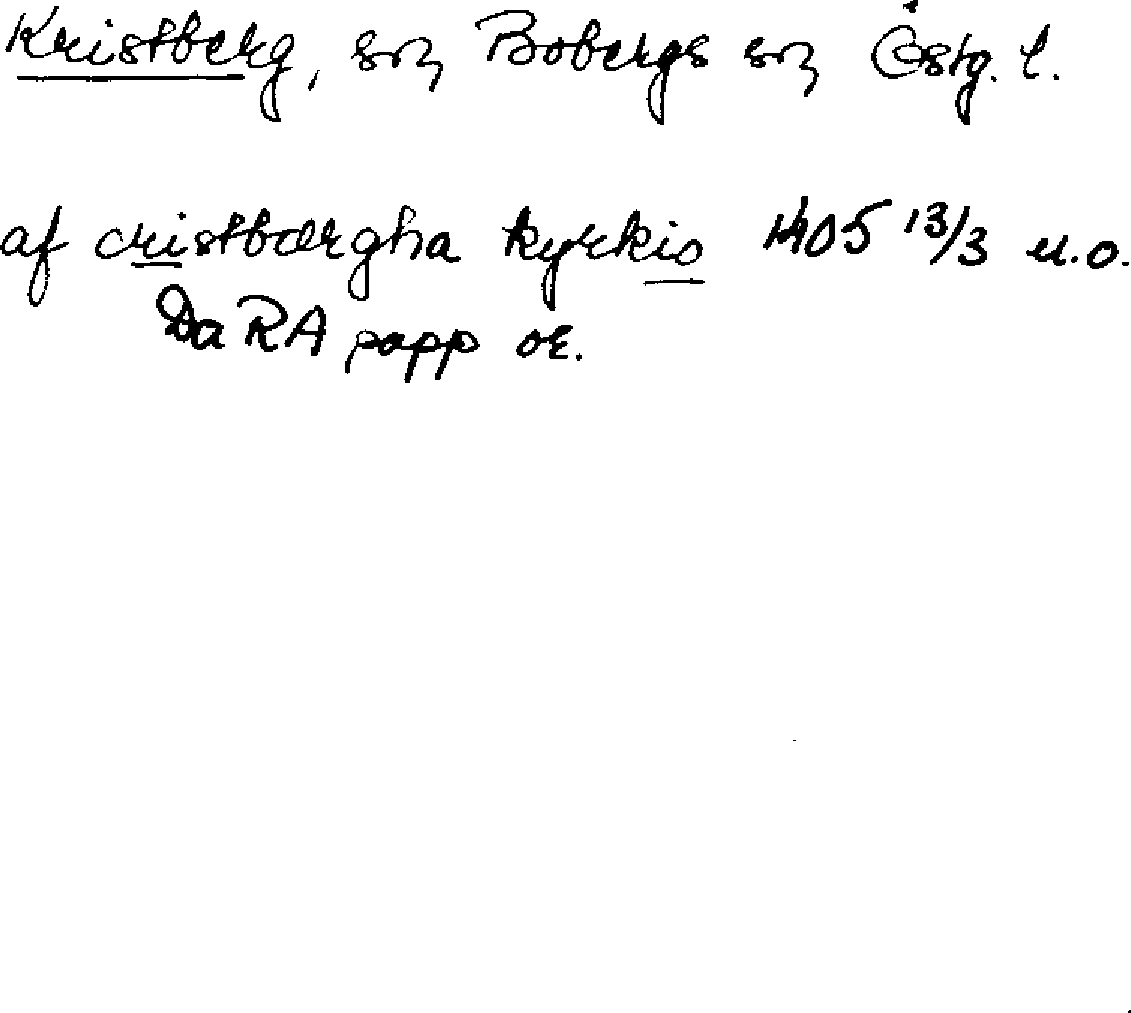 Kristberg, sn, Bobergs sn Östg. l.
af cristbærgha kyrkio 1405 13/3 u.o.
DaRA papp or.